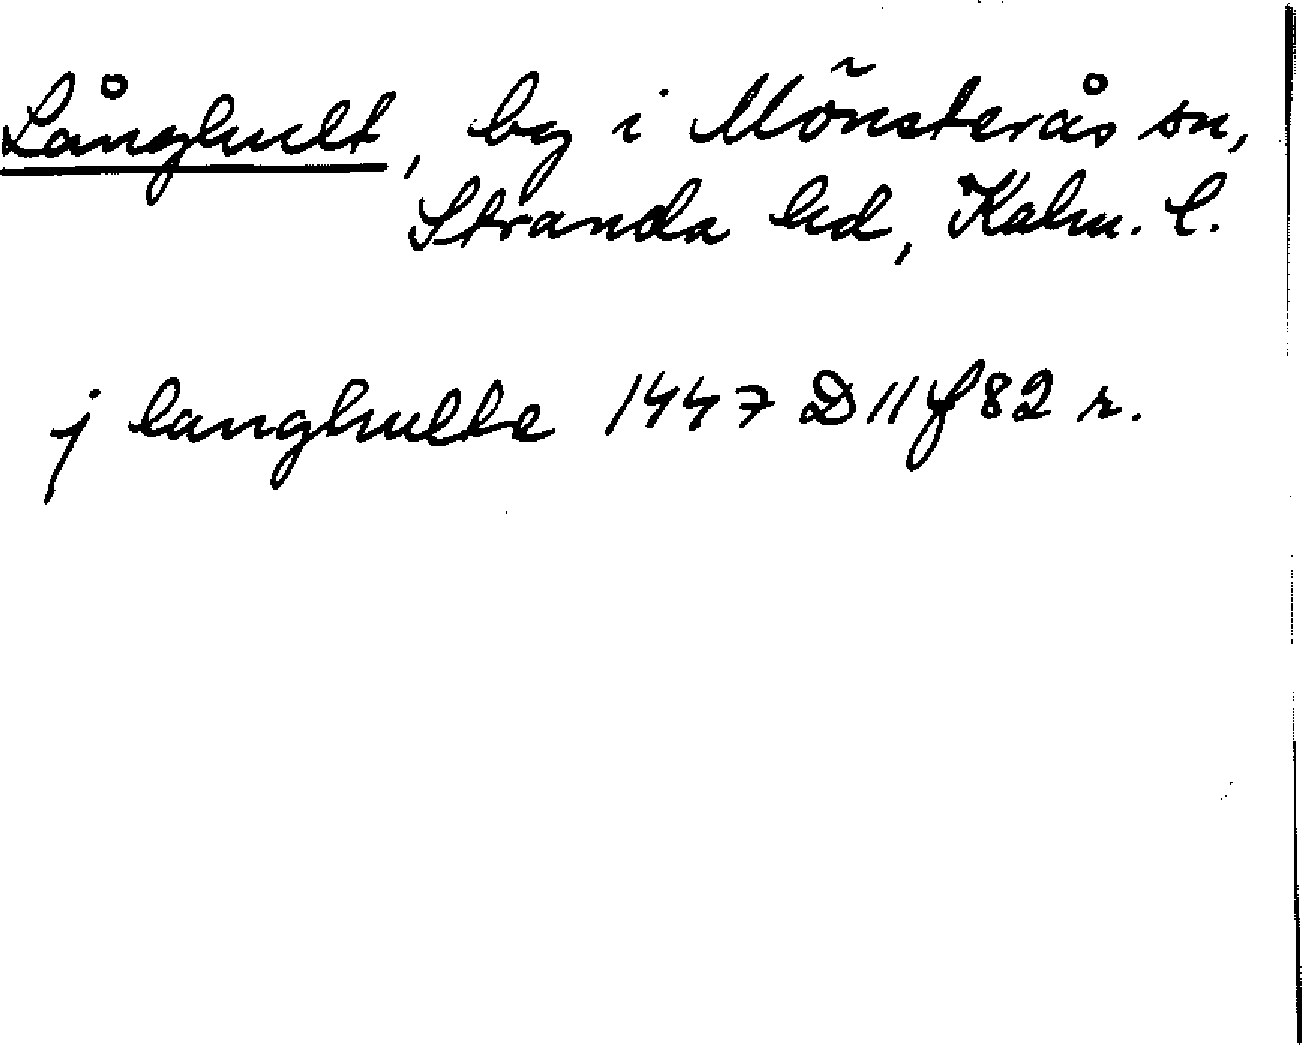 Långhult, by i Mönsterås sn,
Stranda hd, Kalm. l.
j langhulte 1447 D 11 f 82 r.